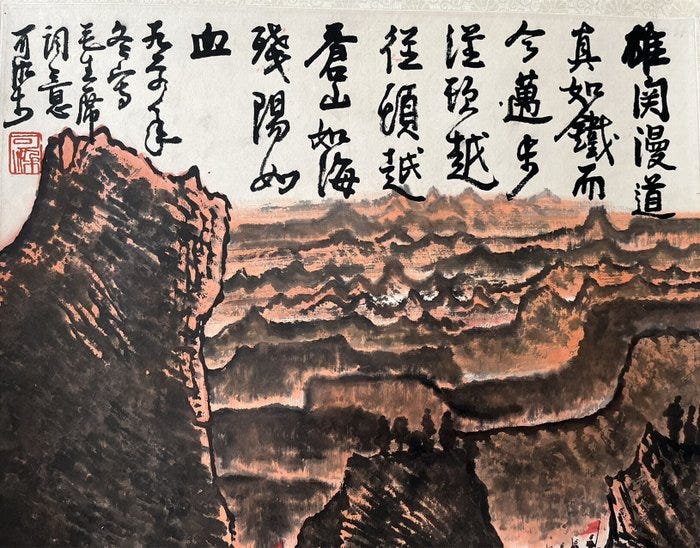 雄関漫道
真如鐵而
今邁步
從頭越
從頭越
蒼山如海
殘陽如
血
年
冬寫
毛主席
詞意
可染